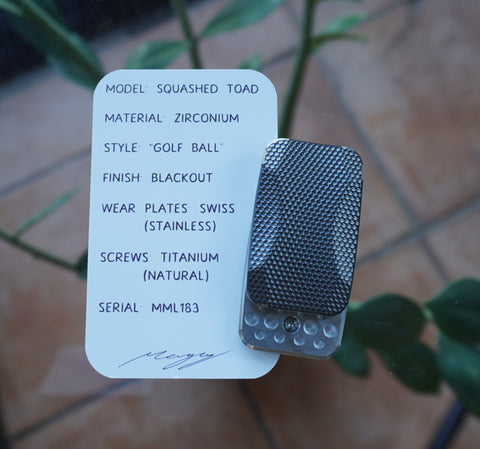 MODEL: SQUASHED TOAD
MATERIAL: ZIRCONIUM
STYLE: "GOLF BALL"
FINISH: BLACKOUT
WEAR PLATES: SWISS
(STAINLESS)
SCREWS: TITANIUM
(NATURAL)
SERIAL: MML183